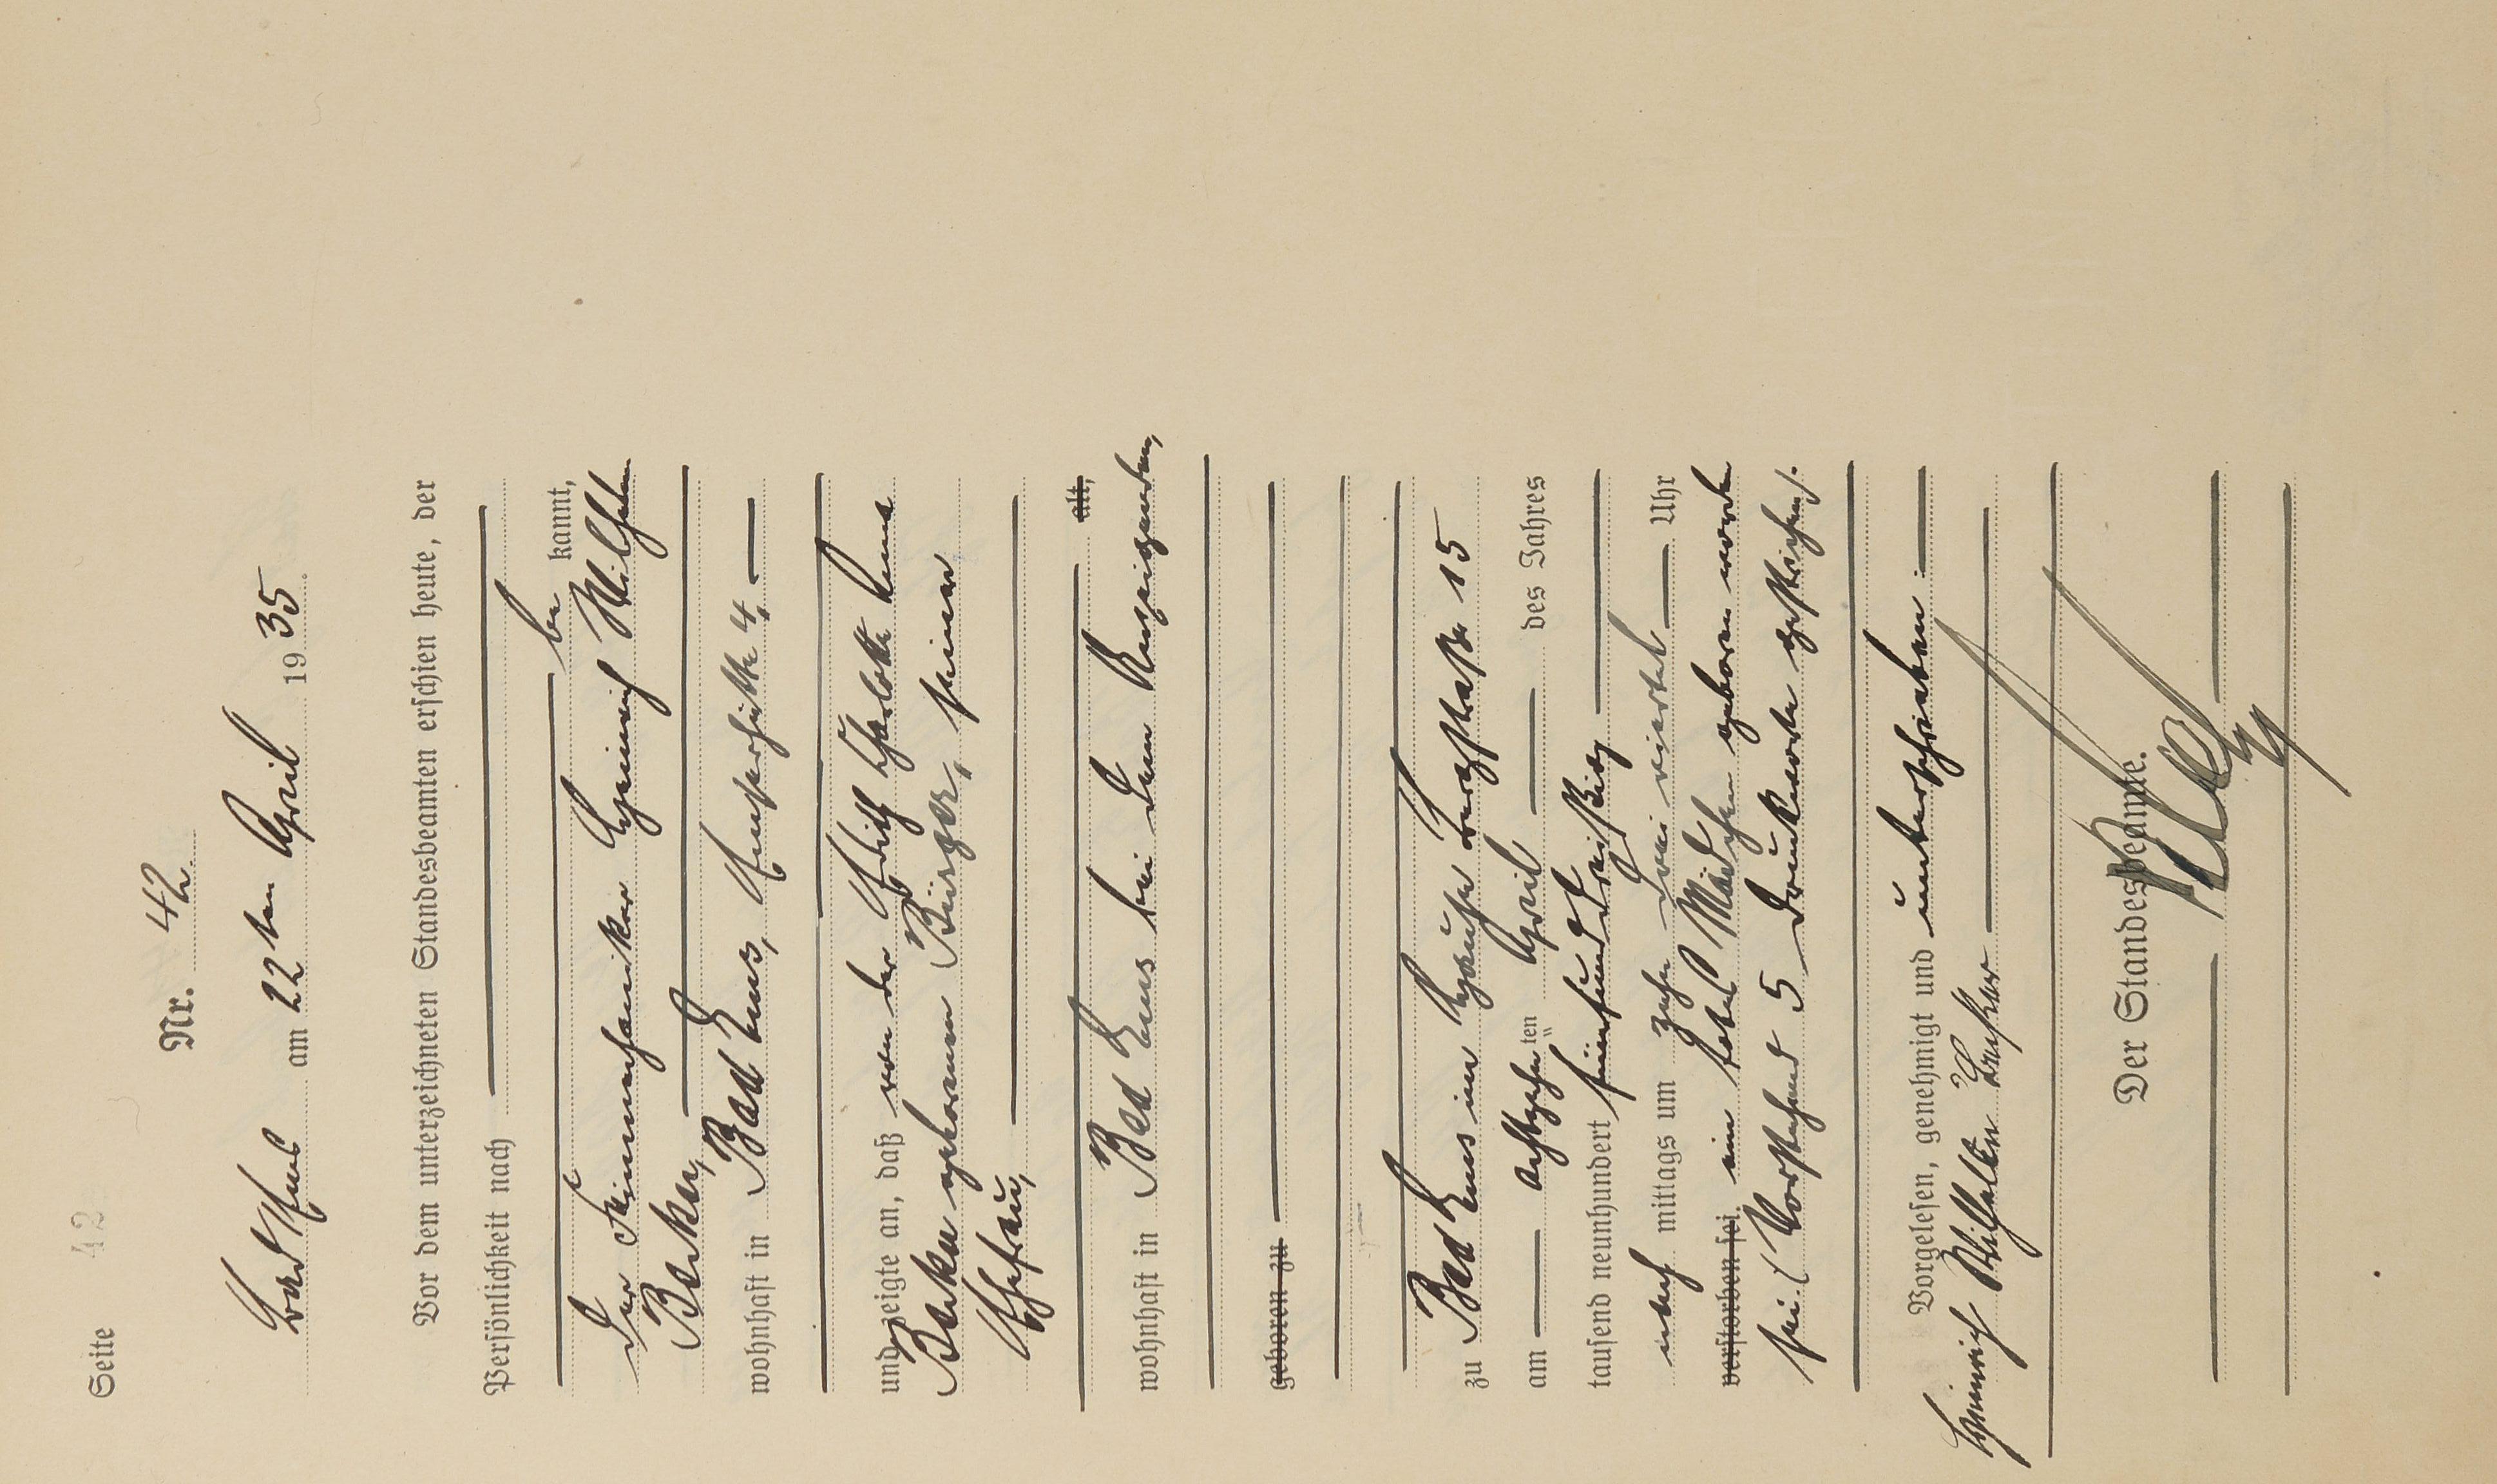 Seite 42
Nr. 42.
Bad Ems am 22 ten April 1935.
Vor dem unterzeichneten Standesbeamten erschien heute, der
Persönlichkeit nach
be kannt,
der Heinrich Wilhelm
Becker,
wohnhaft in Bad Ems, 4,
und zeigte an, daß von der Edith Charlotte
Becker geborenen Bürger, seiner
Ehefrau,
alt,
wohnhaft in Bad Ems bei dem Anzeigenden,
geboren zu
zu Bad Ems im Hause 15
am achtzehn ten April des Jahres
tausend neunhundert fünfunddreißig
nach mittags um zehn drei viertel Uhr
verstorben sei. ein totes Mädchen geboren worden
sei. (Vorstehend 5 Druckworte gestrichen).
Vorgelesen, genehmigt und unterschrieben:
Heinrich Wilhelm Becker
Der Standesbeamte.